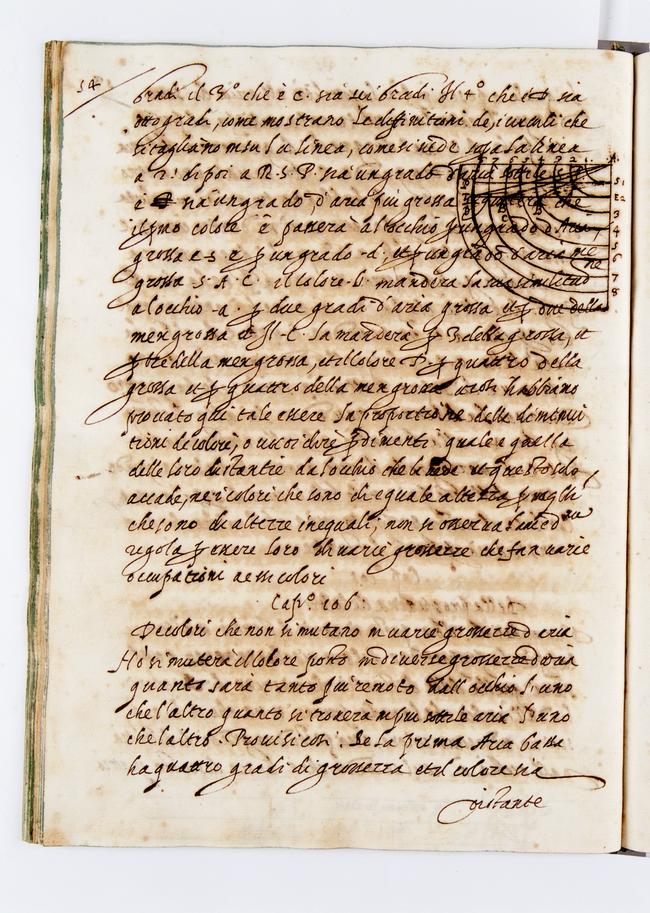 54
gradi il 3º che è c. sia sei gradi Il 4º che è d sia
otto gradi, come mostrano le diffinitioni de, i circuli che
si tagliano insu la linea, come si vede sopra la linea
a r: di poi a R. S. P. sia un grado d'aria sottile e S. P.
è sia un grado d'aria piu grossa seguitera che
il primo colore è passera al occhio ꝑ un grado d'Aria
grossa e S e ꝑ un grado d, et ꝑ un grado d'aria me
ne
grossa S. A. C. il colore b. manderà la sua similitud
al occhio a. ꝑ due gradi d'aria grossa et ꝑ due della
men grossa et Il C. la manderà ꝑ 3 della grossa, et
ꝑ tre della men grossa, et il colore ꝑ quattro della
grossa et ꝑ quattro della men grossa et cosi habbiano
provato qui tale essere la proportione della diminui
tioni de colori, o vuoi dire ꝑdimenti quale e quella
delle loro distantie dal occhio che le vede et questo solo
accade, ne i colori che sono di eguale altezza ꝑ quelli
che sono di altezze inequali, non si osserva la med.ma
regola ꝑ essere loro in varie grossezze che fan varie
occupationi a essi colori
Capº. 106
De colori che non si mutano in varie grossezze d'aria
Nō si muterà il colore posto in diverse grossezze d'aria
quanto sarà tanto piu remoto dall'occhio l'uno
che l'altro quanto si troverà in piu sottile aria l'uno
che l'altro. Provasi cosi. Se la prima Aria bassa
ha quattro gradi di grossezza et il colore sia
distante
7 6 5 4 3 2 1
3
4
5
6
7
8